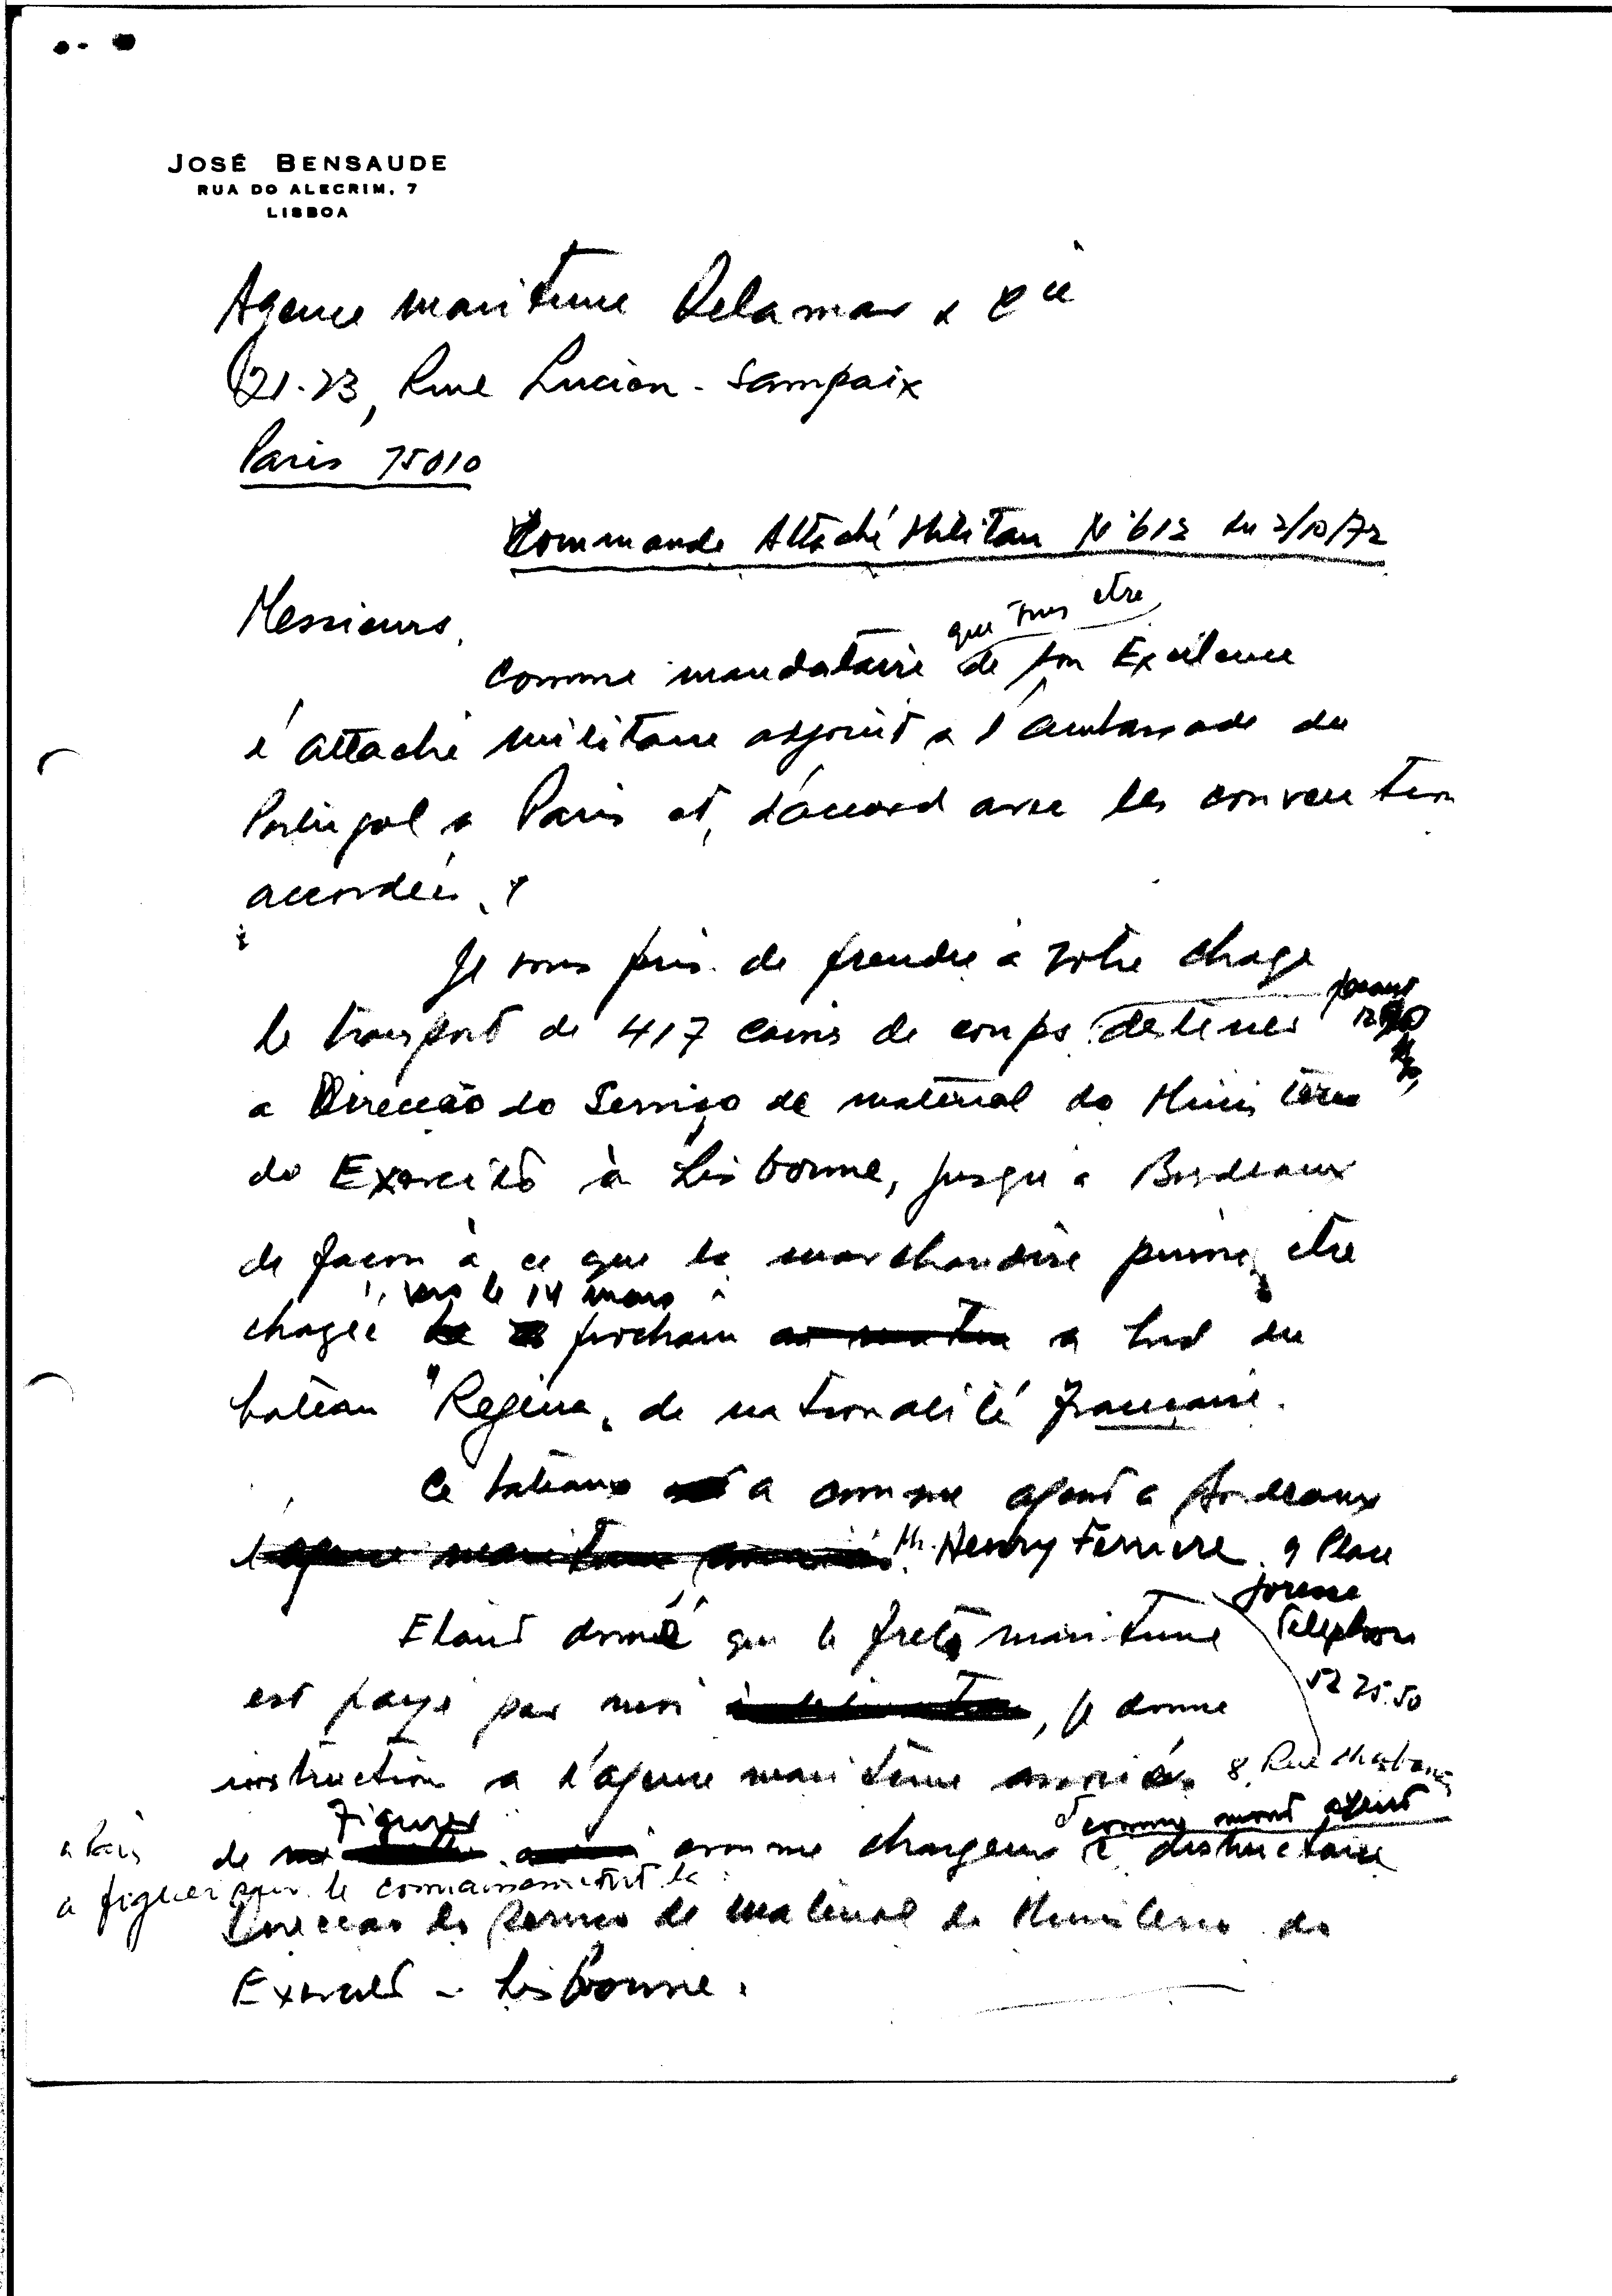 JOSÉ BENSAUDE
RUA DO ALECRIM, 7
LISBOA
Agence maritime Delamar & Cie
21-23, Rue Lucien-Sampaix
Paris 75010
Commande Attaché Militaire Nº 612 du 2/10/72
Messieurs,
que être
Comme mandataire de son Excilence
l'attaché militaire adjoint a l'ambassade du
Portugal a Paris et, d'accord avec les convention
accordées,
Je vous pris de prendre a votre charge
le transport de 417 de coups destines
a Direcção do Serviço de material do Ministerio
do Exercito à Lisbonne, jusqu'a Bordeaux
de façon à ce que la marchandise puisse être
vers le 14 mars
chargée prochain a bord du
bateau "Regina" de nationalité française.
Ce bateaux a comme agent a Bordeaux
l'agence maritime Mr. Henry Ferriere 9 Place
Etant donné que le fret maritime Telephone
est payé par moi , je donne 52 25.50
instruction a l'agence maritime 8, Rue
Figurer comme mont agent
a Paris de comme chargeur
a figurer sur le connaissement la
Direccao do Servico de Material do Ministerio do
Exercito - Lisbonne.